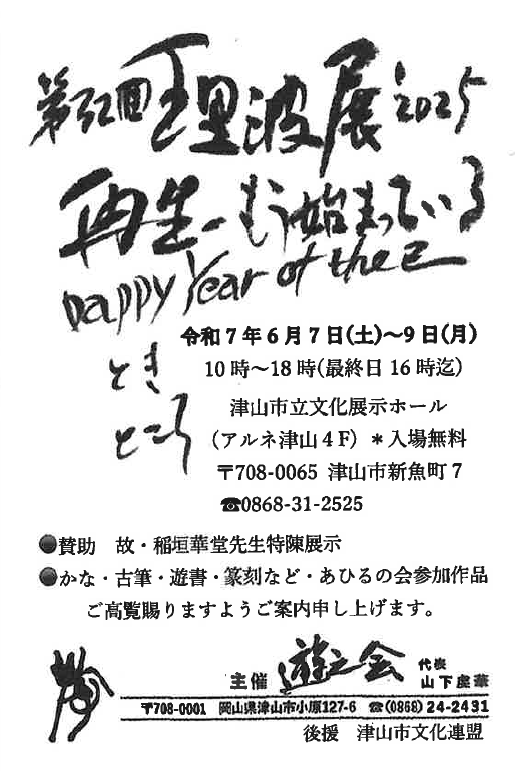 第32回 理波展 '2025
再生-もう始まっている
Happy Year of the 己
令和7年6月7日(土)〜9日(月)
とき
10時〜18時(最終日16時迄)
ところ
津山市立文化展示ホール
(アルネ津山4F) *入場無料
〒708-0065 津山市新魚町7
☎0868-31-2525
●賛助 故・稲垣華堂先生特陳展示
●かな・古筆・遊書・篆刻など・あひるの会参加作品
ご高覧賜りますようご案内申し上げます。
主催 遊之会 代表
山下虚華
〒708-0001 岡山県津山市小原127-6 ☎(0868)24-2431
後援 津山市文化連盟